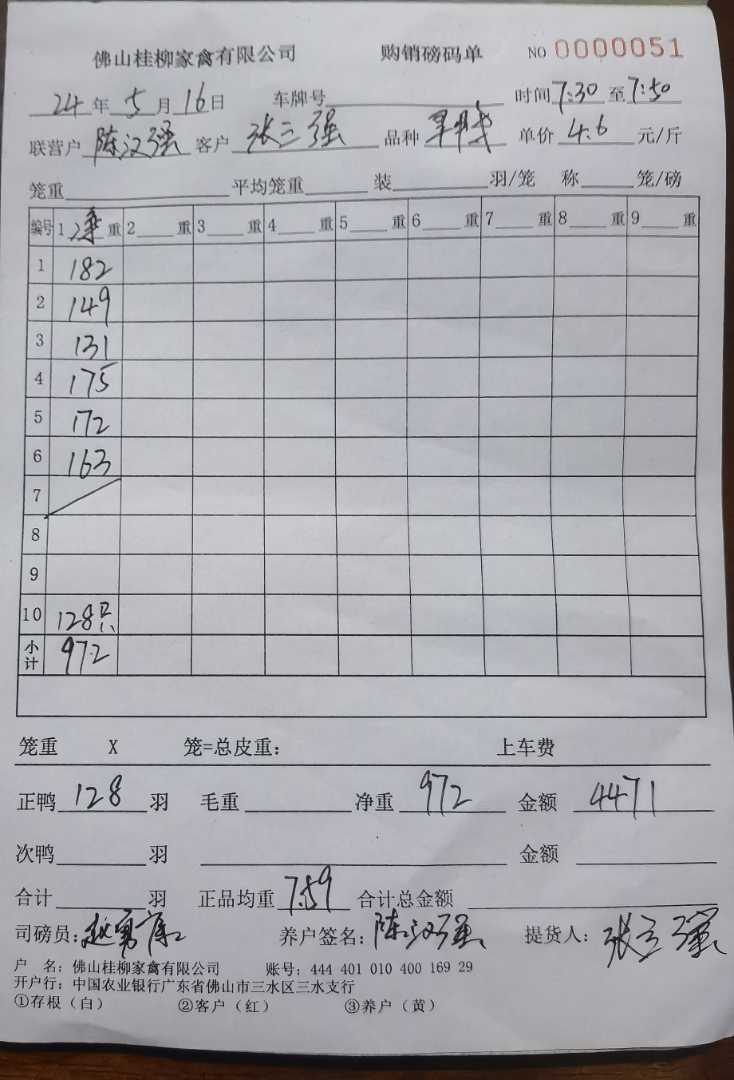 佛山桂柳家禽有限公司 购销磅码单 NO 0000051
24年5月16日 车牌号 时间7:30至7:50
联营户 陈汉强 客户 张三强 品种 单价 4.6 元/斤
笼重 平均笼重 装 羽/笼 称 笼/磅
编号 1 净 重 2 重 3 重 4 重 5 重 6 重 7 重 8 重 9 重
1 182
2 149
3 131
4 175
5 172
6 163
7
8
9
10 128只
小计 972
笼重 X 笼=总皮重: 上车费
正鸭 128 羽 毛重 净重 972 金额 4471
次鸭 羽 金额
合计 羽 正品均重 7.59 合计总金额
司磅员: 养户签名: 陈汉强 提货人: 张三强
户 名: 佛山桂柳家禽有限公司 账号: 444 401 010 400 169 29
开户行: 中国农业银行广东省佛山市三水区三水支行
①存根(白) ②客户(红) ③养户(黄)